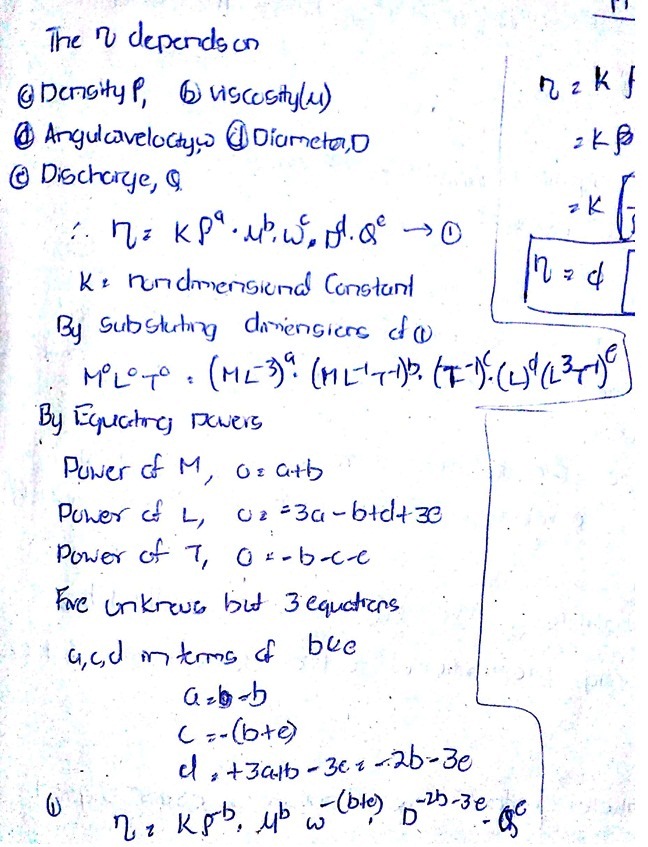 The η depends on
ⓐ Density ρ, ⓑ viscosity(μ)
ⓓ Angularvelocity,ω ⓓ Diameter,D
ⓔ Discharge, Q
∴ η = Kρᵃ · μᵇ. ωᶜ. Dᵈ. Qᵉ → ①
K = nondimensional Constant
By substuting dimensions of ①
M⁰L⁰T⁰ = (ML⁻³)ᵃ. (ML⁻¹T⁻¹)ᵇ. (T⁻¹)ᶜ. (L)ᵈ (L³T⁻¹)ᵉ
By Equating powers
Power of M, 0 = a+b
Power of L, 0 = -3a - b+d+3e
Power of T, 0 = -b-c-e
Five unknows but 3 equations
a,c,d in terms of b&e
a = -b
c = -(b+e)
d = +3a+b - 3e = -2b-3e
① η = Kρ⁻ᵇ. μᵇ ω⁻⁽ᵇ⁺ᵉ⁾. D⁻²ᵇ⁻³ᵉ · Qᵉ
η = K ρ
= K ρ
= K [
η = ϕ [